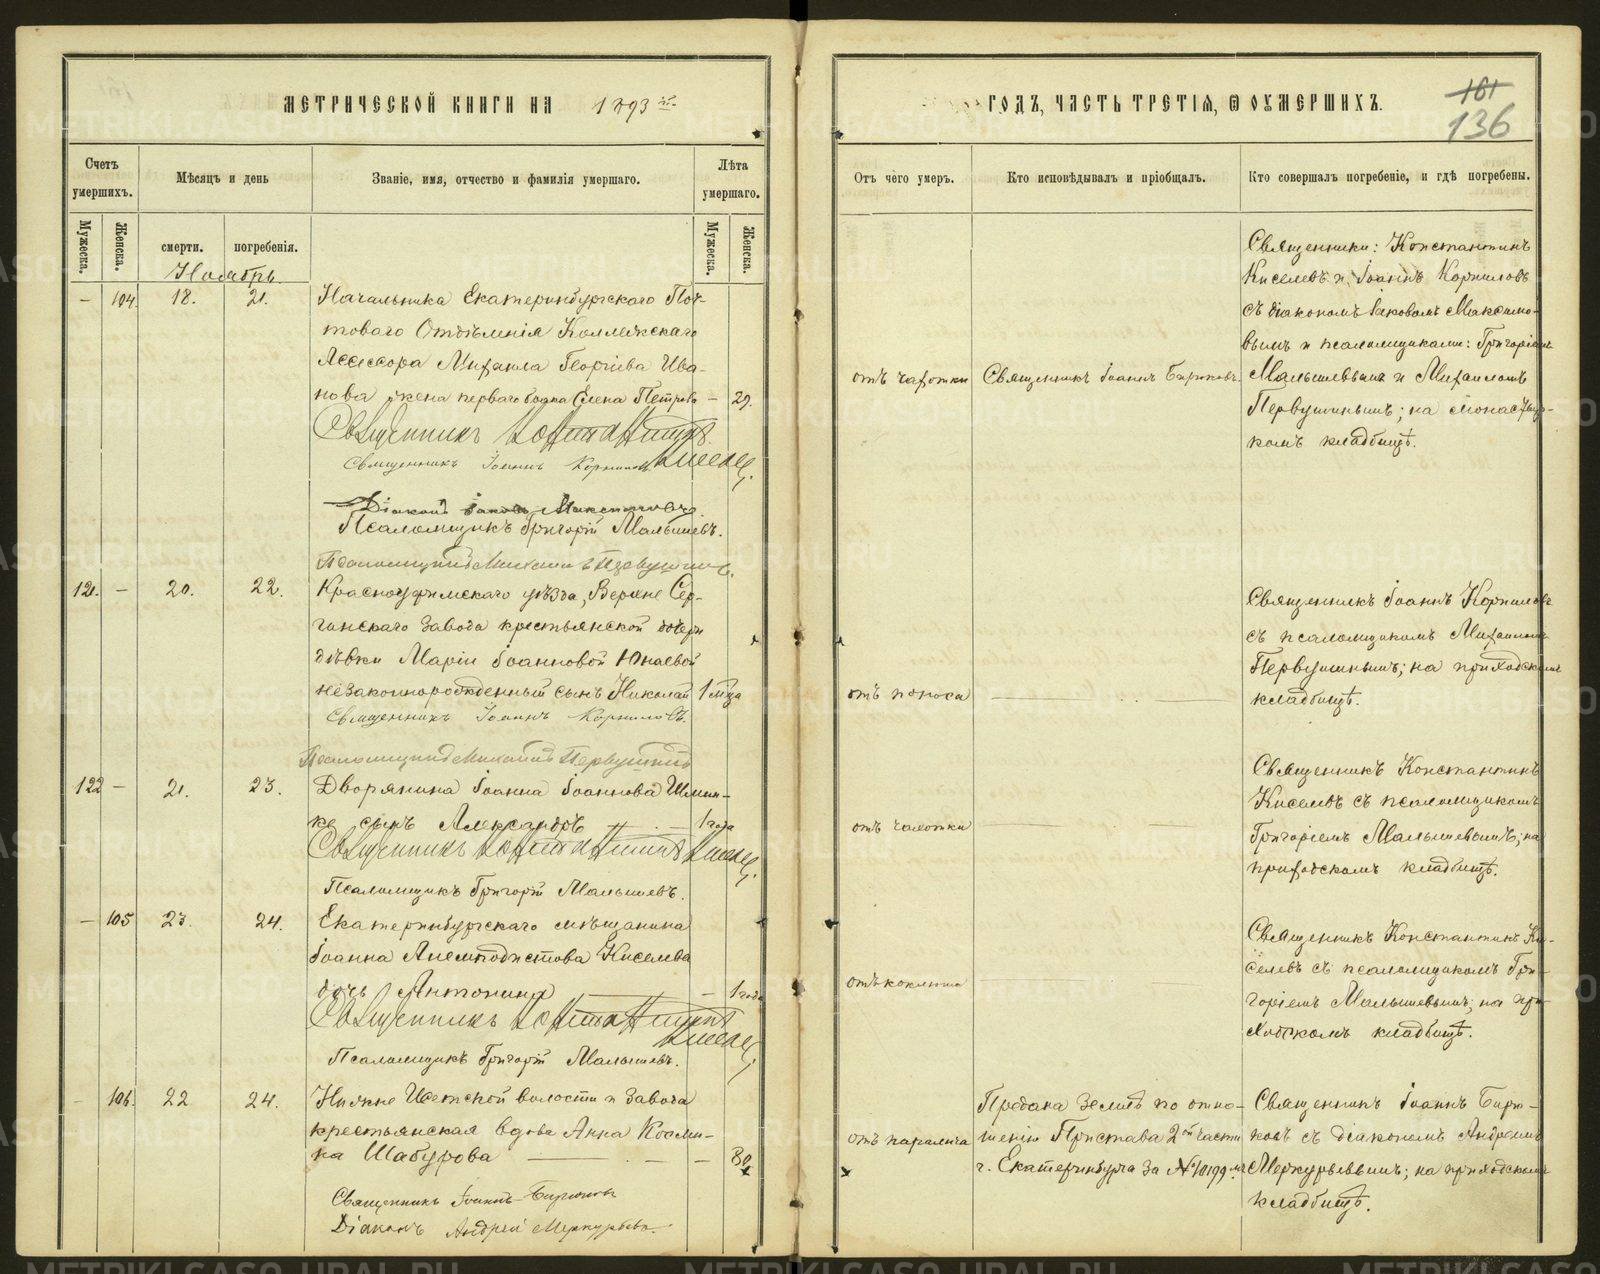 МЕТРИЧЕСКОЙ КНИГИ НА 1893 й.
ГОДЪ, ЧАСТЬ ТРЕТІЯ, Ѿ ОУМЕРШИХЪ.
161
136
Счетъ умершихъ.
Мѣсяцъ и день
Званіе, имя, отчество и фамилія умершаго.
Лѣта умершаго.
Отъ чего умеръ.
Кто исповѣдывалъ и пріобщалъ.
Кто совершалъ погребеніе, и гдѣ погребены.
Мужеска.
Женска.
смерти.
погребенія.
Мужеска.
Женска.
Ноябрь.
– 104. 18. 21.
Начальника Екатеринбургскаго Поч-
товаго Отдѣленія Коллежскаго
Ассесора Михаила Георгіева Ива-
нова жена перваго брака Елена Петрова – 29.
Священникъ Константинъ
Киселев.
Священникъ Іоаннъ Корнилов
Діаконъ Іаковъ Максимовъ.
Псаломщикъ Григорій Малышевъ.
Псаломщикъ Михаилъ Первушинъ.
отъ чахотки
Священникъ Іоаннъ Бирюковъ.
Священники: Константинъ
Киселевъ и Іоаннъ Корниловъ
съ діакономъ Іаковомъ Максимо-
вымъ и псаломщиками: Григоріемъ
Малышевымъ и Михаиломъ
Первушинымъ; на монастыр-
комъ кладбищѣ.
121. – 20. 22.
Красноуфимскаго уѣзда, Верхне Сер-
гинскаго завода крестьянской дочери
дѣвки Маріи Іоанновой Юнаевой
незаконнорожденный сынъ Николай 1 мѣца
Священникъ Іоаннъ Корниловъ.
Псаломщикъ Михаилъ Первушинъ
отъ поноса
Священникъ Іоаннъ Корниловъ
съ псаломщикомъ Михаиломъ
Первушинымъ; на приходскомъ
кладбищѣ.
122 – 21. 23.
Дворянина Іоанна Іоаннова Шмин-
ке сынъ Александръ 1 года
Священникъ Константинъ Киселев.
Псаломщикъ Григорій Малышевъ.
отъ чахотки
Священникъ Константинъ
Киселевъ съ псаломщикомъ
Григоріемъ Малышевымъ; на
приходскомъ кладбищѣ.
– 105 23. 24.
Екатеринбургскаго мѣщанина
Іоанна Анемподистова Киселева
дочь Антонина – 1 года
Священникъ Константинъ
Киселев.
Псаломщикъ Григорій Малышевъ.
отъ коклюша
Священникъ Константинъ Ки-
селевъ съ псаломщикомъ Гри-
горіемъ Малышевымъ; на при-
ходскомъ кладбищѣ.
– 106. 22 24.
Нижне Исетской волости и завода
крестьянская вдова Анна Косми-
на Шабурова – 80.
Священникъ Іоаннъ Бирюковъ
Діаконъ Андрей Меркурьевъ.
отъ паралича
Предана землѣ по отно-
шенію Пристава 2ой части
г. Екатеринбурга за № 10199.м
Священникъ Іоаннъ Бирю-
ковъ съ діакономъ Андреемъ
Меркурьевымъ; на приходскомъ
кладбищѣ.
METRIKI.GASO-URAL.RU